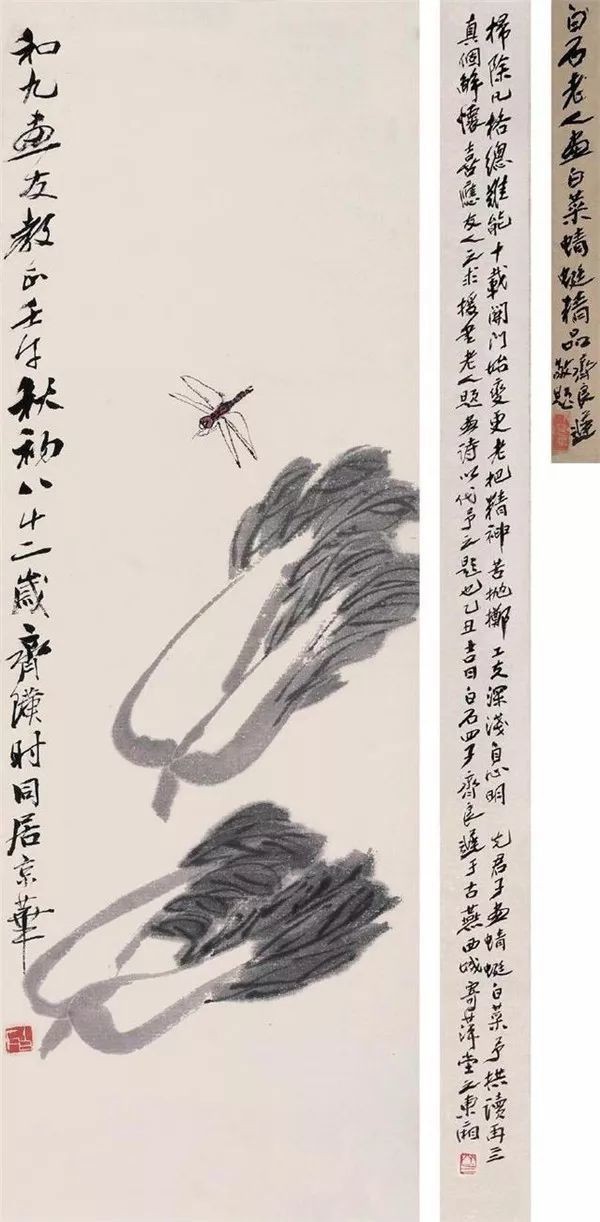 白石老人畫白菜蜻蜓精品 齊良遲
敬題
掃除凡格總難能十載關門始變更老把精神苦拋擲工夫深淺自心明 先君子畫蜻蜓白菜予拱讀再三
真個解懷喜應友人之求援書老人題畫詩以代予之題也乙丑吉日白石四子齊良遲于古燕西城寄萍堂之東廂
和九畫友教正壬午秋初八十二歲齊璜時同居京華